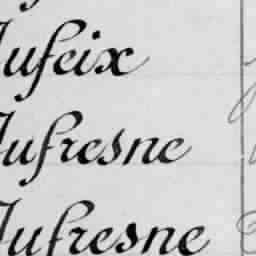 Dufeix
Dufresne
Dufresne